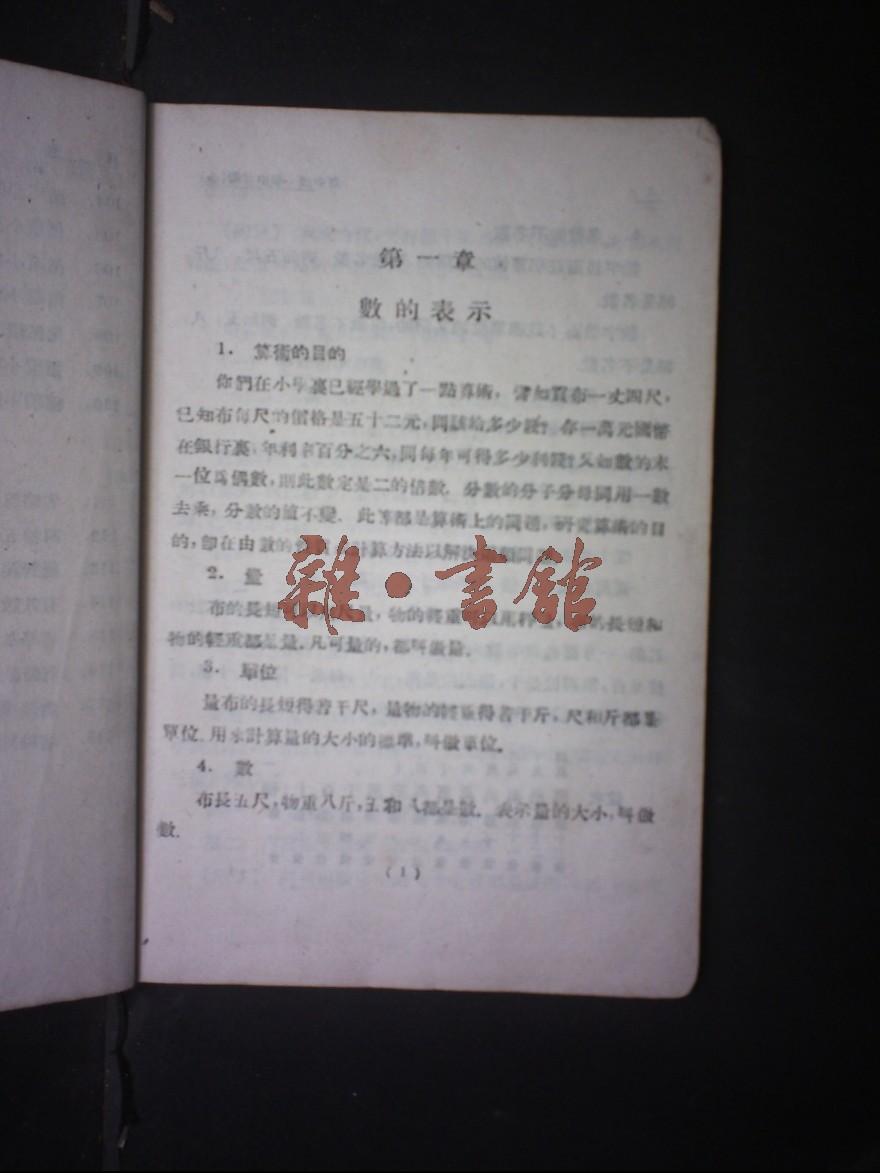 第一章
數的表示
1. 算術的目的
你們在小學裏已經學過了一點算術，譬如買布一丈四尺，
已知布每尺的價格是五十二元，問該給多少錢？存一萬元國幣
在銀行裏，年利率百分之六，問每年可得多少利錢？又如數的末
一位爲偶數，則此數定是二的倍數．分數的分子分母同用一數
去乘，分數的值不變．此等都是算術上的問題，研究算術的目
的，卽在由數的計算方法以解決問
雜·書館
2. 量
布的長短尺量，物的輕重秤量，的長短和
物的輕重都是量．凡可量的，都叫做量．
3. 單位
量布的長短得若干尺，量物的輕重得若干斤，尺和斤都是
單位．用來計算量的大小的標準，叫做單位．
4. 數
布長五尺，物重八斤，五和八都是數．表示量的大小，叫做
數．
(1)